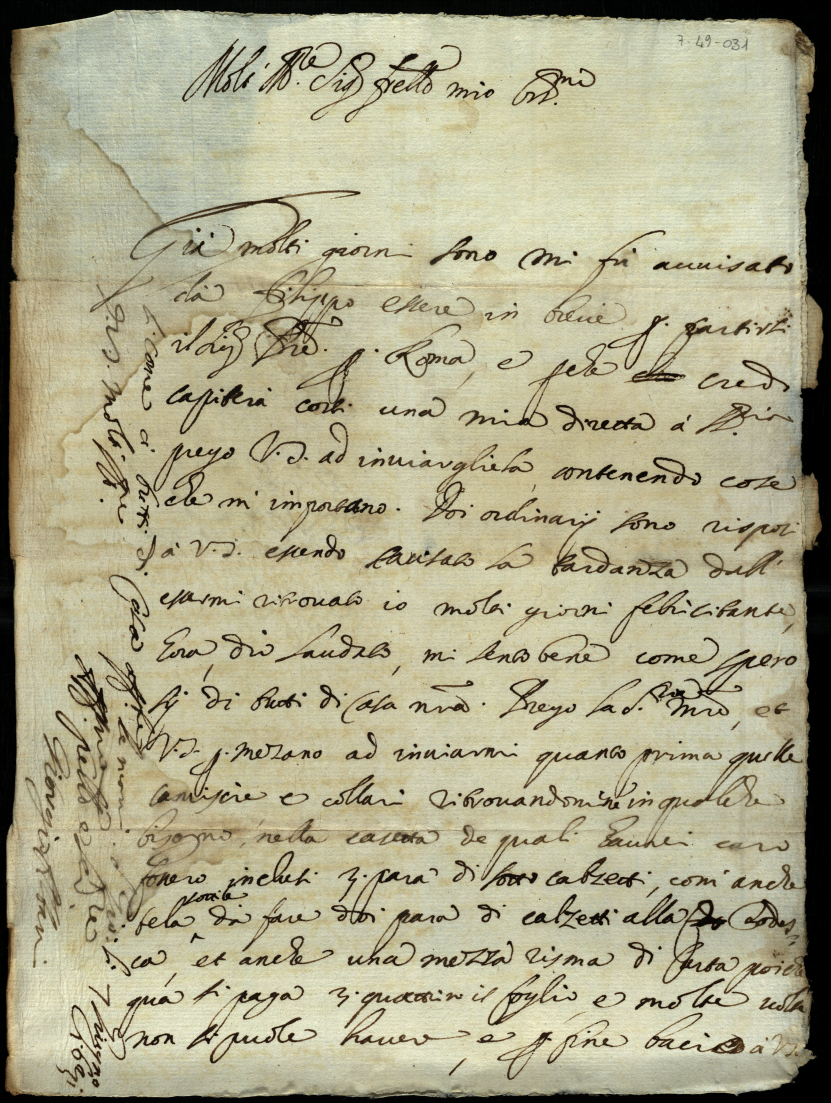 7-49-031
Molt Ill.re Sig.r frello mio oss.mo
Già molti giorni sono mi fù auuisato
da Filippo essere in breue p. partirsi
il Sig.r p. Roma, e perche credo
capiterà costì una mia diretta á
prego V.S. ad inuiargliela, contenendo cose
che mi importano. Doi ordinarij sono risposi
á V.S. essendo causato la tardanza dall'
essermi ritrouato io molti giorni febricitante,
hora, dio laudato, mi sento bene come spero
sij di tutti di casa nra. Prego la S.ra Mre, et
V.S. p. mezano ad inuiarmi quanto prima quelle
camiscie e collari ritrouandomene in qualche
bisogno, nella casetta de quali hauerei caro
fossero inclusi 3. para di sotto calzetti, com'anche
tela sottile da fare doi para di calzetti alla Todes-
ca, et anche una mezza risma di carta poiche
quà si paga 3. quattrini il foglio, e molte uolte
non si puole hauere, e p. fine bacio á V.S.
si come di tutti di casa
D. V.S. molto Ill.re
li 7 Giugno